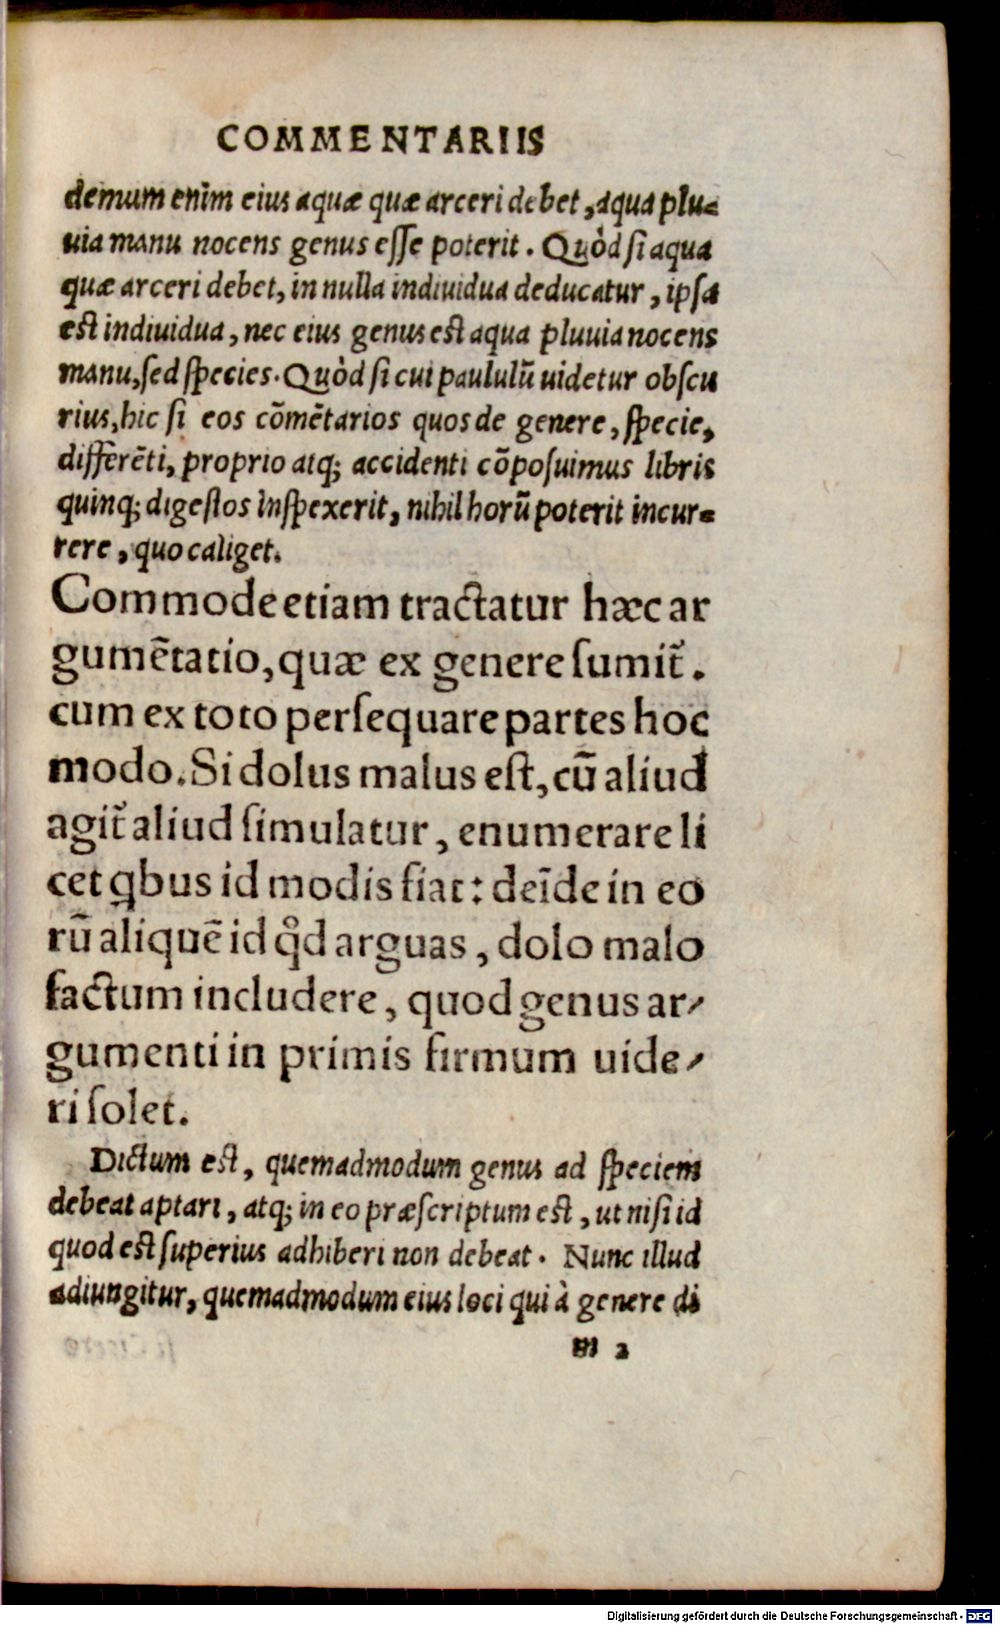 COMMENTARIIS
demum enim eius aquæ quæ arceri debet, aqua plu-
uia manu nocens genus eſſe poterit. Quòd ſi aqua
quæ arceri debet, in nulla indiuidua deducatur, ipſa
eſt indiuidua, nec eius genus eſt aqua pluuia nocens
manu, ſed ſpecies. Quòd ſi cui paululũ uidetur obſcu
rius, hic ſi eos cõmẽtarios quos de genere, ſpecie,
differẽti, proprio atq; accidenti cõpoſuimus libris
quinq; digeſtos inſpexerit, nihil horũ poterit incur-
rere, quo caliget.
Commode etiam tractatur hæc ar
gumẽtatio, quæ ex genere ſumit᷑.
cum ex toto perſequare partes hoc
modo. Si dolus malus eſt, cũ aliud
agit᷑ aliud ſimulatur, enumerare li
cet ꝗbus id modis fiat: deĩde in eo
rũ aliquẽ id qͦd arguas, dolo malo
factum includere, quod genus ar-
gumenti in primis firmum uide-
ri ſolet.
Dictum eſt, quemadmodum genus ad ſpeciem
debeat aptari, atq; in eo præſcriptum eſt, ut niſi id
quod eſt ſuperius adhiberi non debeat. Nunc illud
adiungitur, quemadmodum eius loci qui à genere di
m 2
Digitalisierung gefördert durch die Deutsche Forschungsgemeinschaft - DFG